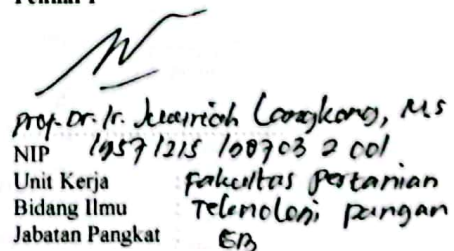 Prof. Dr. Ir. Jumriah Langkong, MS
NIP 19571215 198703 2 001
Unit Kerja Fakultas Pertanian
Bidang Ilmu Teknologi pangan
Jabatan Pangkat GB